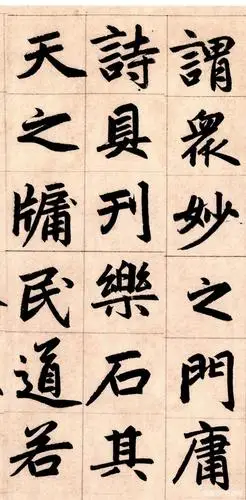 謂衆妙之門庸
詩具刊樂石其
天之牗民道若